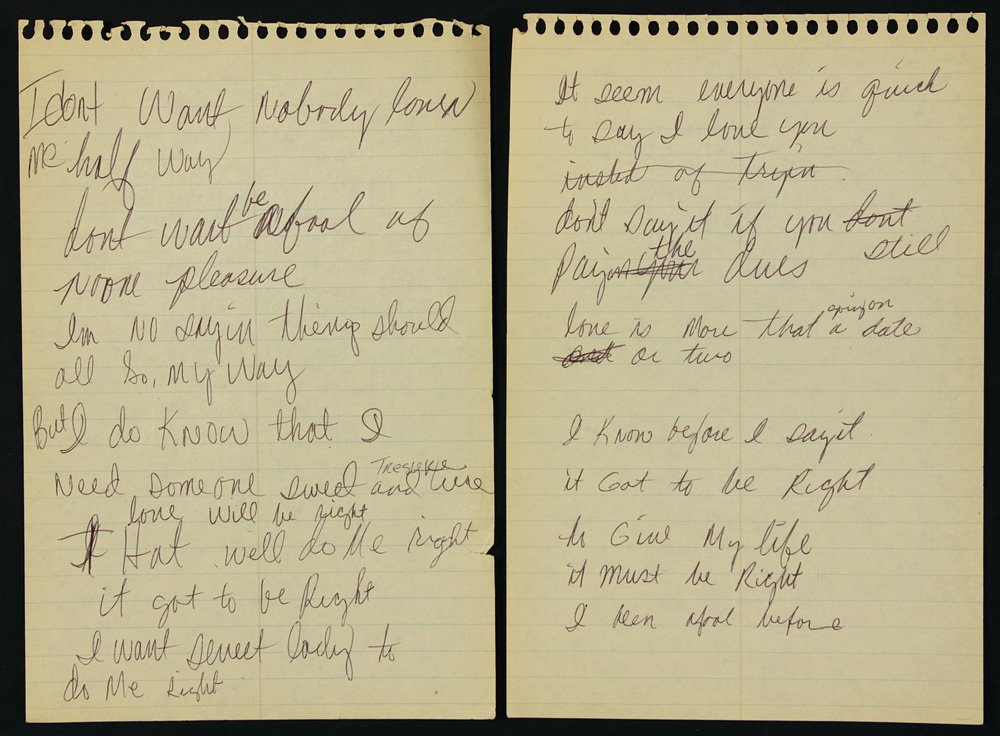 I dont Want Nobody loven
Me half way
dont want be a fool of
Noone pleasure
Im No sayin things should
all Go, My Way
But I do Know that I
Need someone sweet and
love will be right
that will do Me right
it got to be Right
I want sweet lady to
do Me Right
It seem everyone is quick
to say I love you
insted of tryin
dont say it if you dont
Payin your the dues still
love is More that a date
or two
I Know before I say it.
it Got to be Right
to Give My life
it Must be Right
I been afool before